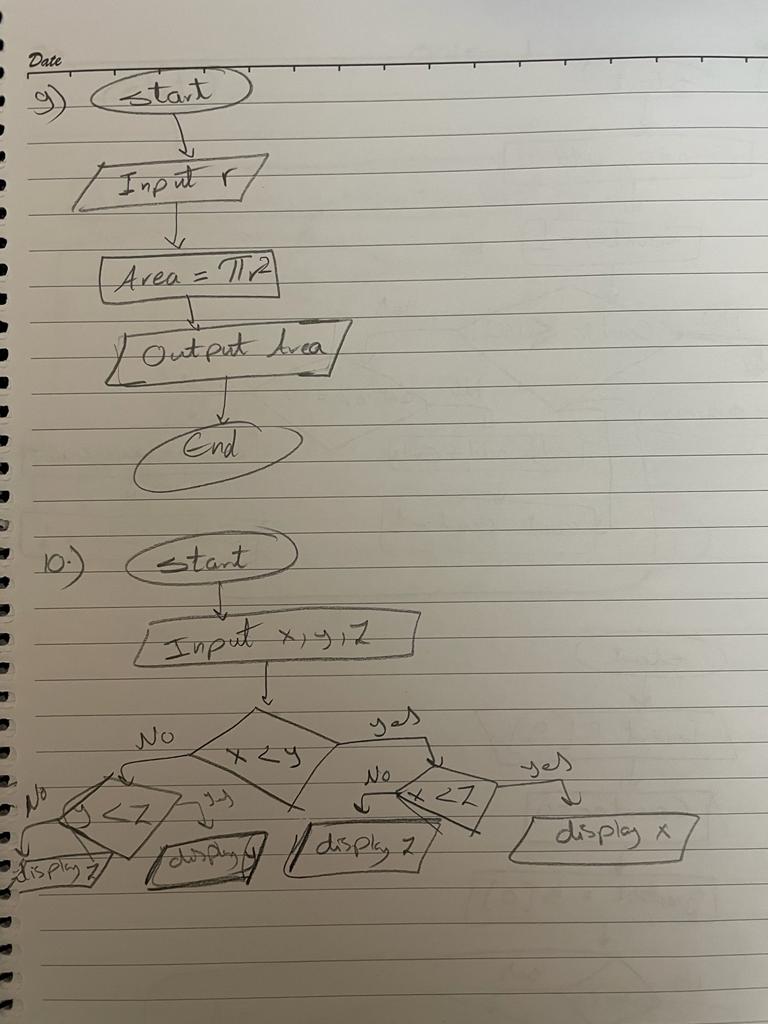 Date
9) Start
Input r
Area = πr²
Output Area
End
10.) Start
Input x, y, Z
x < y
No
yes
y < Z
No
yes
x < Z
No
yes
display Z
display y
display Z
display x